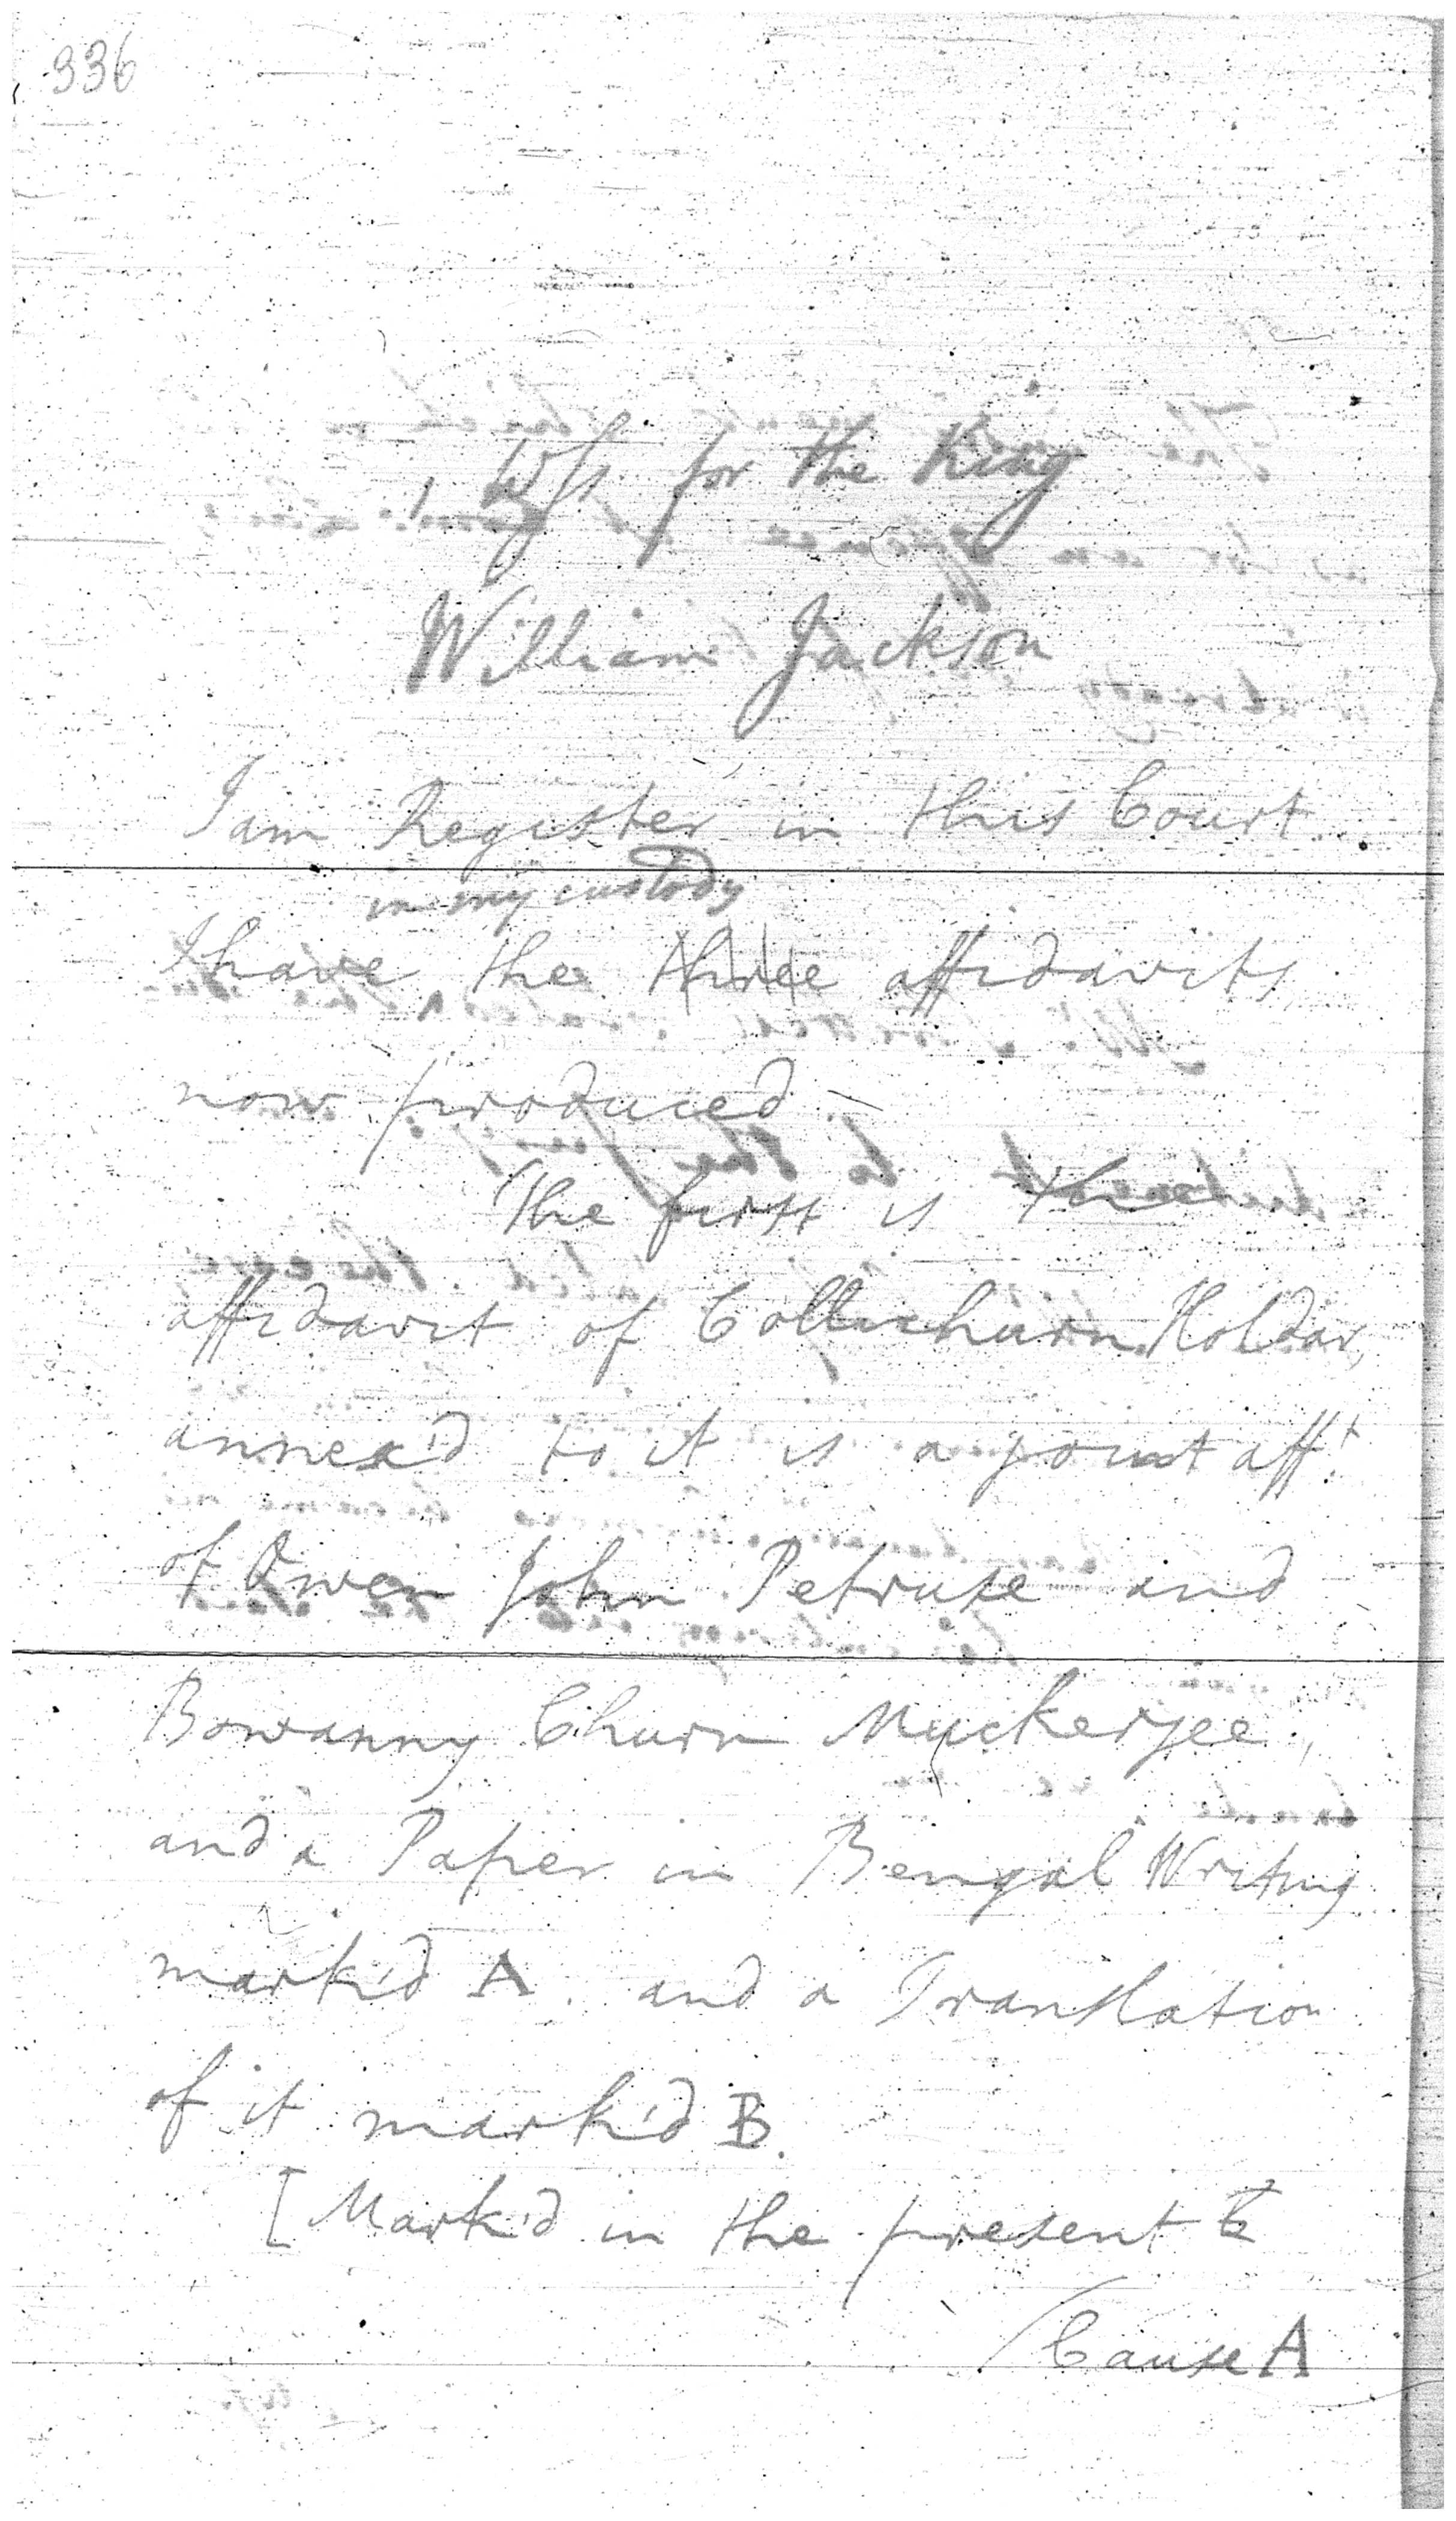 336
1 Wss for the King
William Jackson
I am Register in this Court
in my custody
I have the three affidavits
now produced —
The first is the
affidavit of Collychurn Holdar,
annex'd to it is a joint afft
of Owen John Petruse and
Bowanny Churn Muckerjee,
and a Paper in Bengal Writing
mark'd A. and a Translation
of it mark'd B.
[Mark'd in the present
Cause A